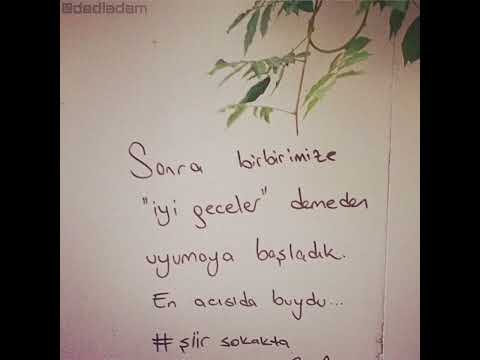 @dedladam
Sonra birbirimize
"iyi geceler" demeden
uyumaya başladık.
En acısıda buydu...
# şiir sokakta